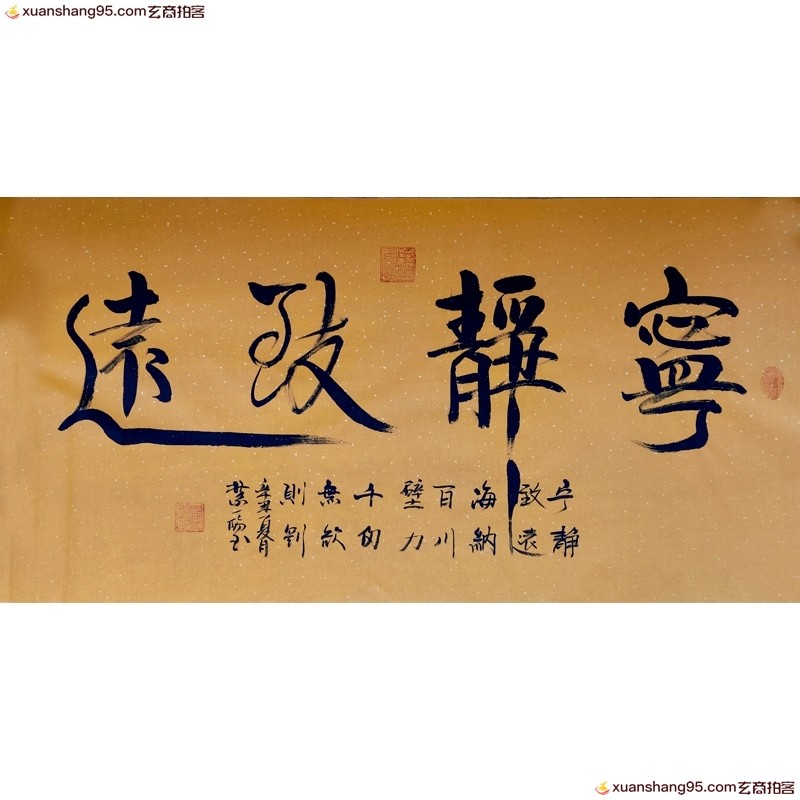 xuanshang95.com玄商拍客
寧靜致遠
宁靜
致遠
海納
百川
壁力
千仞
無欲
則剛
辛丑夏月
xuanshang95.com玄商拍客